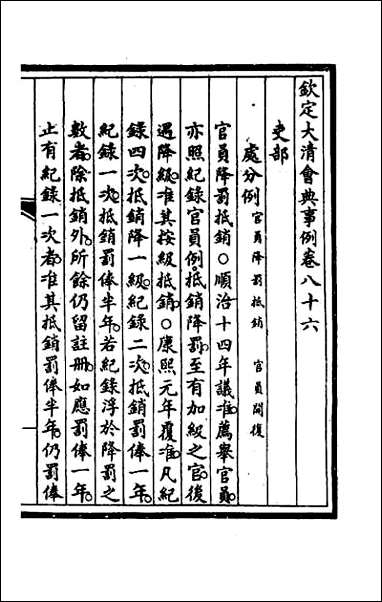 欽定大清會典事例卷八十六
吏部
處分例 官員降罰抵銷 官員開復
官員降罰抵銷○順治十四年議准薦舉官員
亦照紀錄官員例抵銷降罰至有加級之官後
遇降級准其按級抵銷○康熙元年覆准凡紀
錄四次抵銷降一級紀錄二次抵銷罰俸一年
紀錄一次抵銷罰俸半年若紀錄浮於降罰之
數者除抵銷外所餘仍留註冊如應罰俸一年
止有紀錄一次者准其抵銷罰俸半年仍罰俸